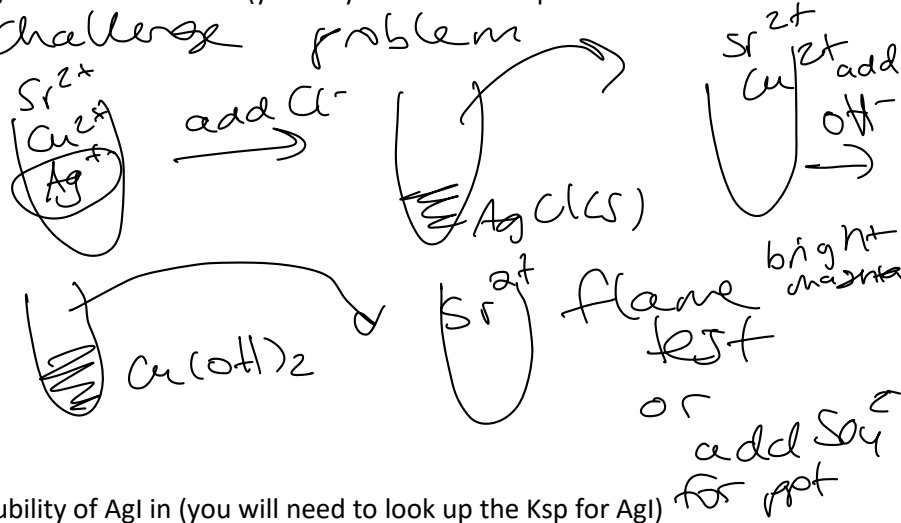 challenge problem
Sr²⁺
Cu²⁺
Ag⁺
add Cl⁻
AgCl(s)
Sr²⁺
Cu²⁺
add
OH⁻
Cu(OH)2
Sr²⁺
flame
test
bright
or
add SO4²⁻
for ppt
ubility of AgI in (you will need to look up the Ksp for AgI)